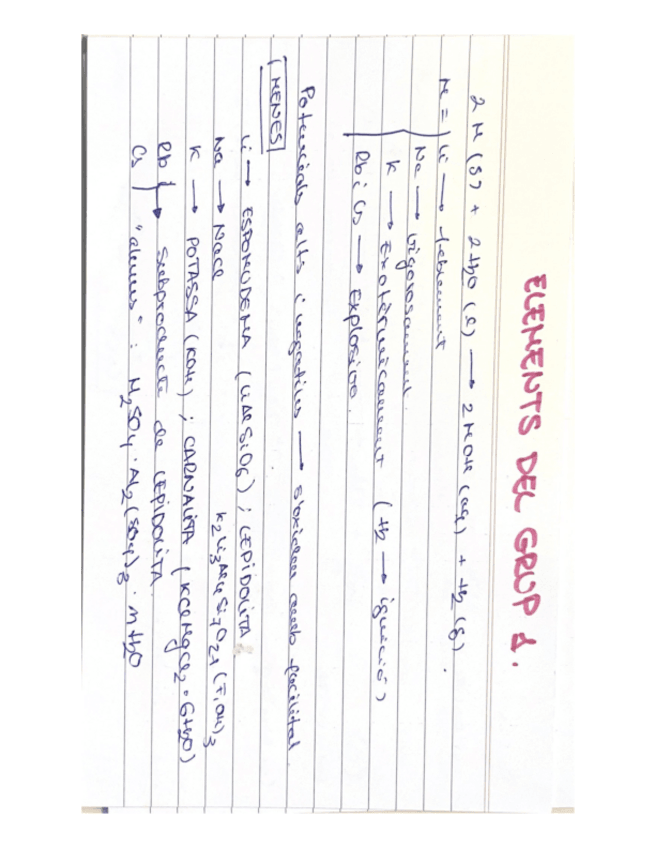 ELEMENTS DEL GRUP 1.
2 M (s) + 2H2O (l) → 2 MOH (aq) + H2 (g).
M = Li → feblement
Na → Vigorosament.
K → Exotèrmicament (H2 → ignició)
Rb i Cs → Explosiva.
Potencials alts i negatius → s'oxiden amb facilitat
MENES
Li → ESPOMUDENA (LiAlSiO6) ; LEPIDOLITA
K2Li3Al4Si7O21(F,OH)3
Na → NaCl
K → POTASSA (KOH) ; CARNALITA (KClMgCl2·6H2O)
Rb
Cs
→ Subproducte de LEPIDOLITA
"alums" : M2SO4·Al2(SO4)3·nH2O